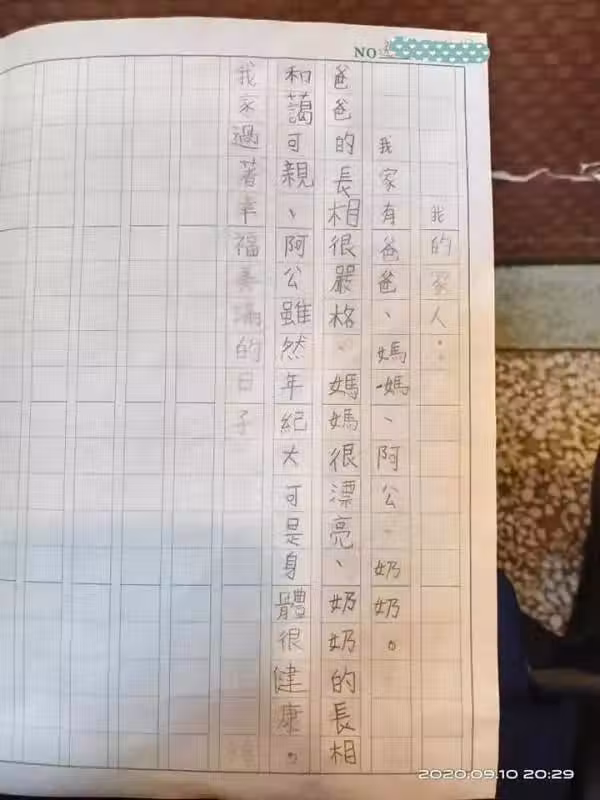 NO
我的家人：
我家有爸爸、媽媽、阿公、奶奶。
爸爸的長相很嚴格。媽媽很漂亮、奶奶的長相
和藹可親、阿公雖然年紀大可是身體很健康。
我家過著幸福美滿的日子
2020.09.10 20:29